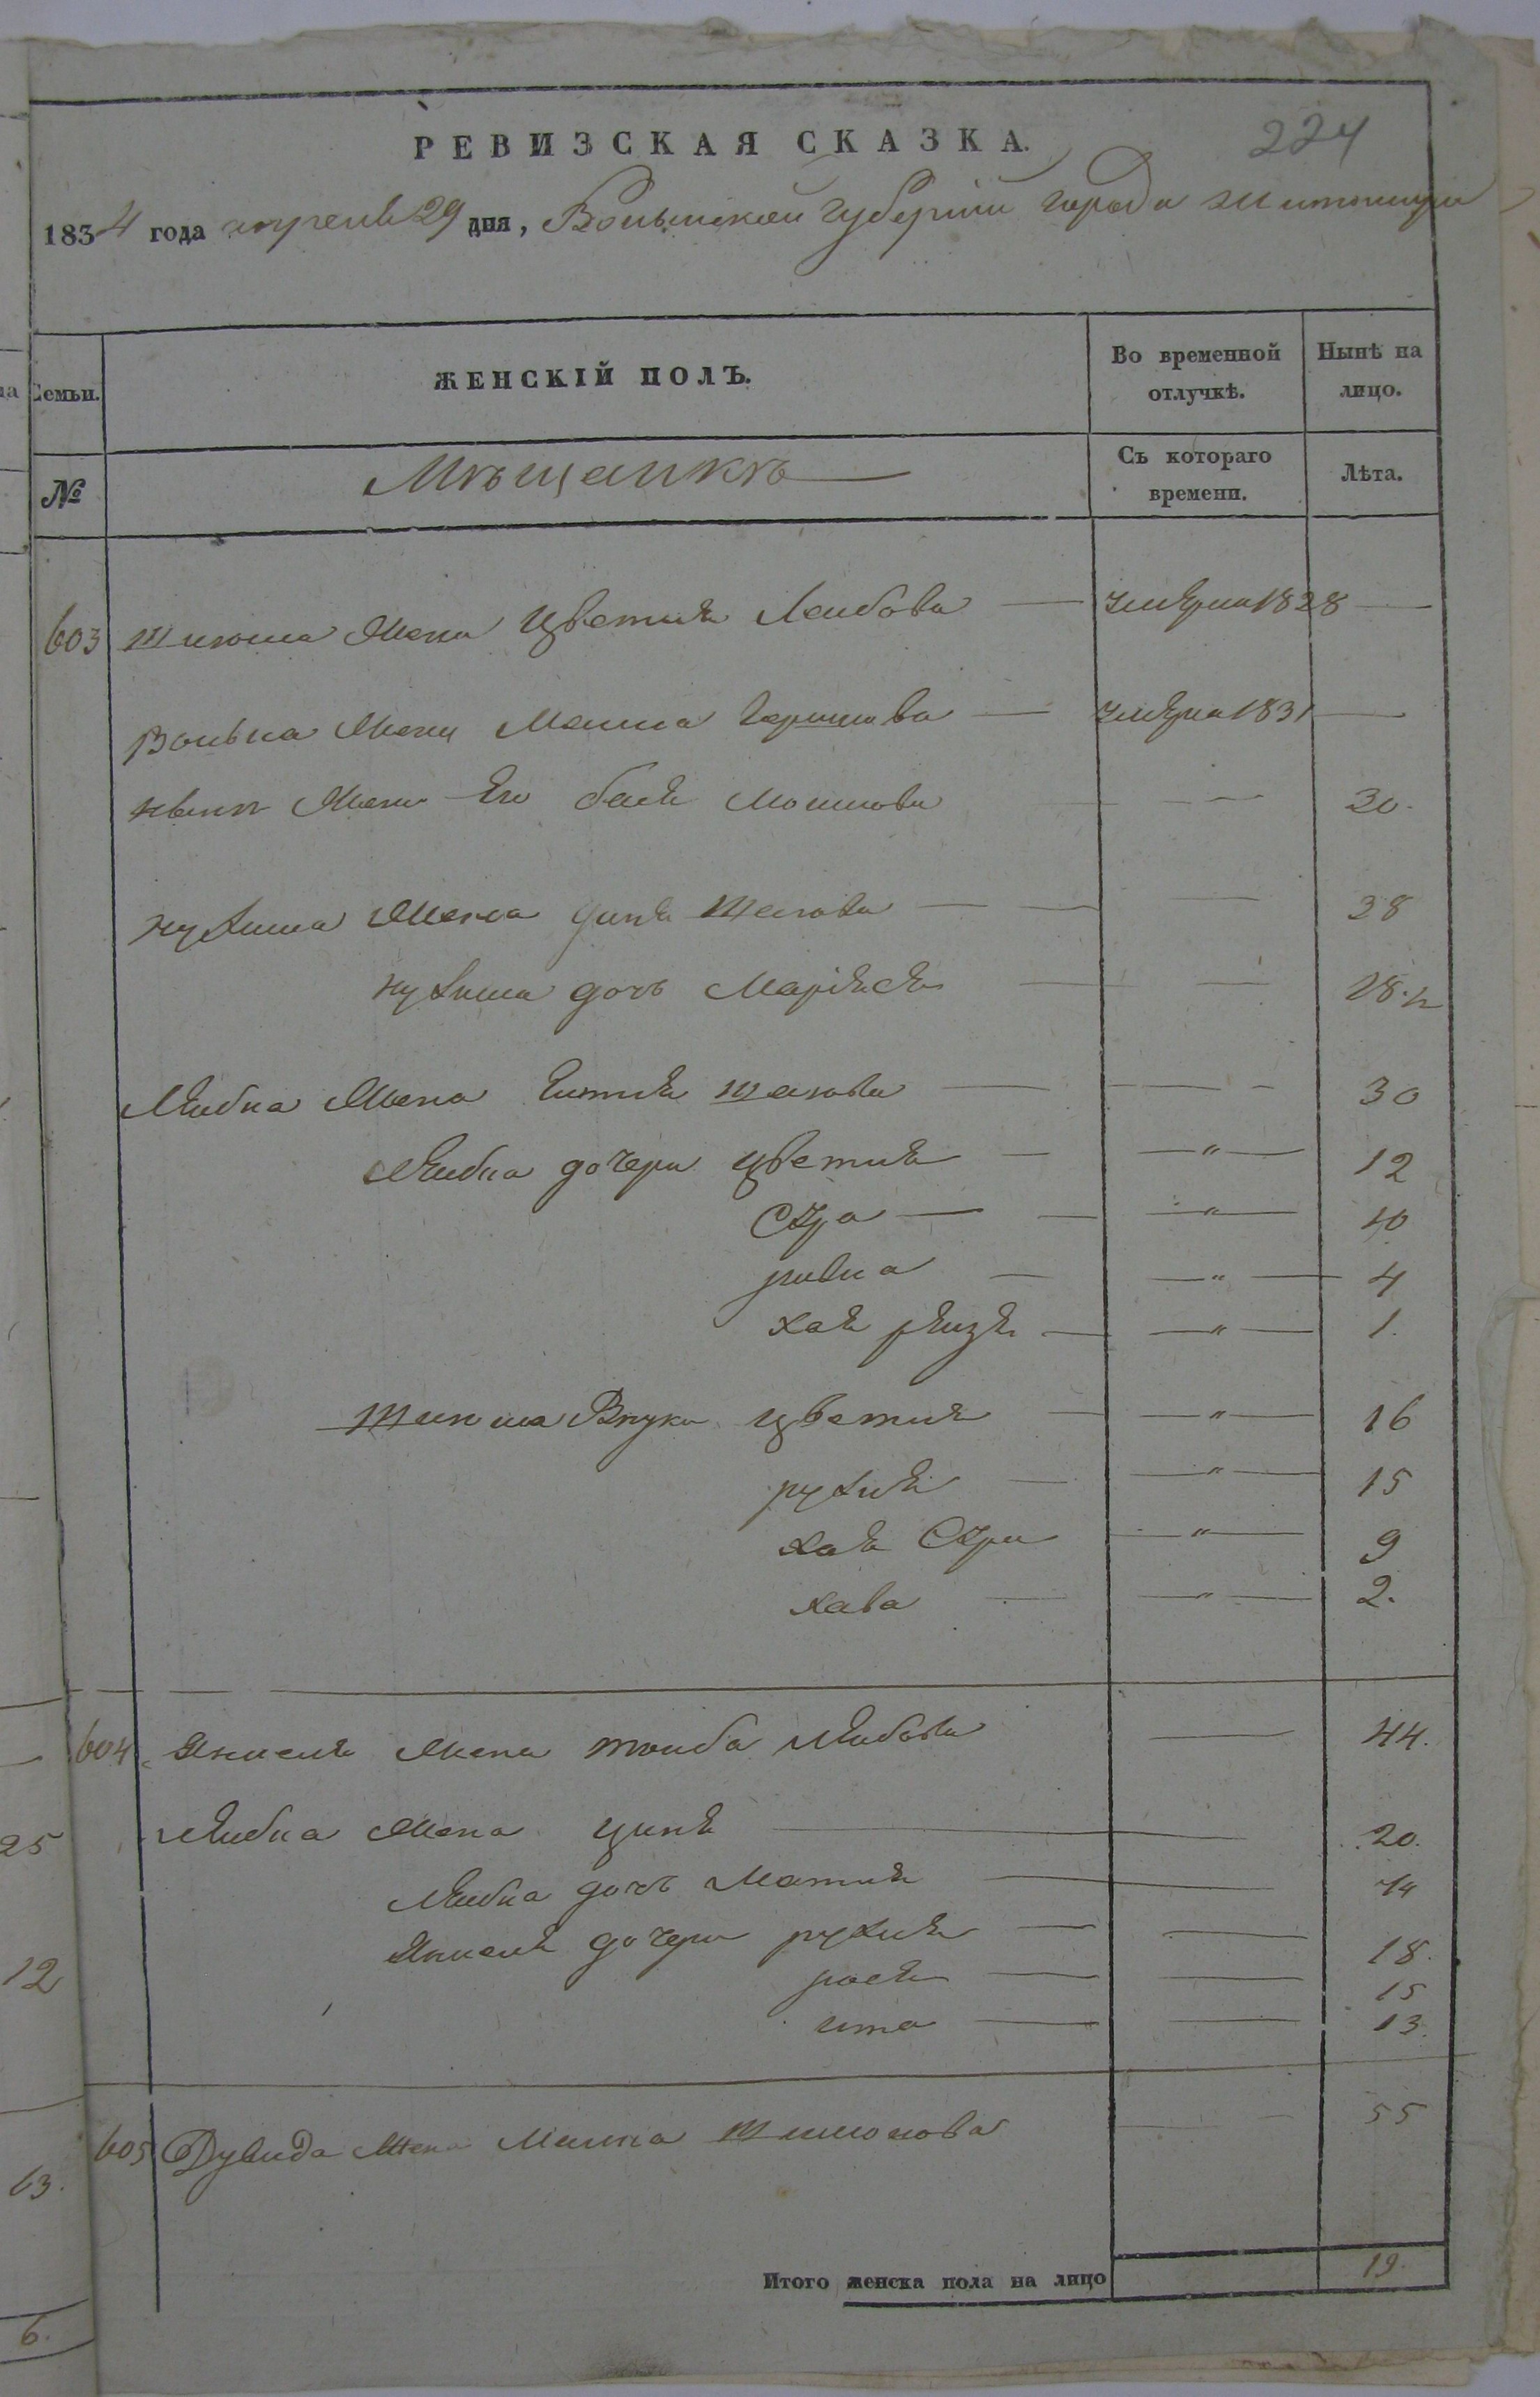 224
РЕВИЗСКАЯ СКАЗКА.
1834 года апреля 29 дня, Волынской губернии города Житомира
Семьи. ЖЕНСКІЙ ПОЛЪ. Во временной отлучкѣ. Нынѣ на лицо.
№ Мѣщанкѣ Съ котораго времени. Лѣта.
603 жена Цветия Леибова — умерла 1828 —
Волька жена Гершкова — умерла 1831 —
жена его бася Мошкова — 30.
Нухима жена Шаева — 38
Нухима дочь Маріяся — 18.
Леибка жена Ештия Шаева — 30
Леибка дочери цветия — " — 12
Сура — " — 10
ривка — " — 4
хая реизя — " — 1.
внуки цветия — " — 16
рухля — " — 15
хая Сура — " — 9
хава — " — 2.
604 Якиеля жена тоиба Леибова — 44.
Леибка жена ципя — 20.
Леибка дочь Матия —
Якиеля дочери рухля — 18.
рося — 15
ита — 13.
605 Дувида жена — 55
Итого женска пола на лицо 19.
25
12
63.
6.